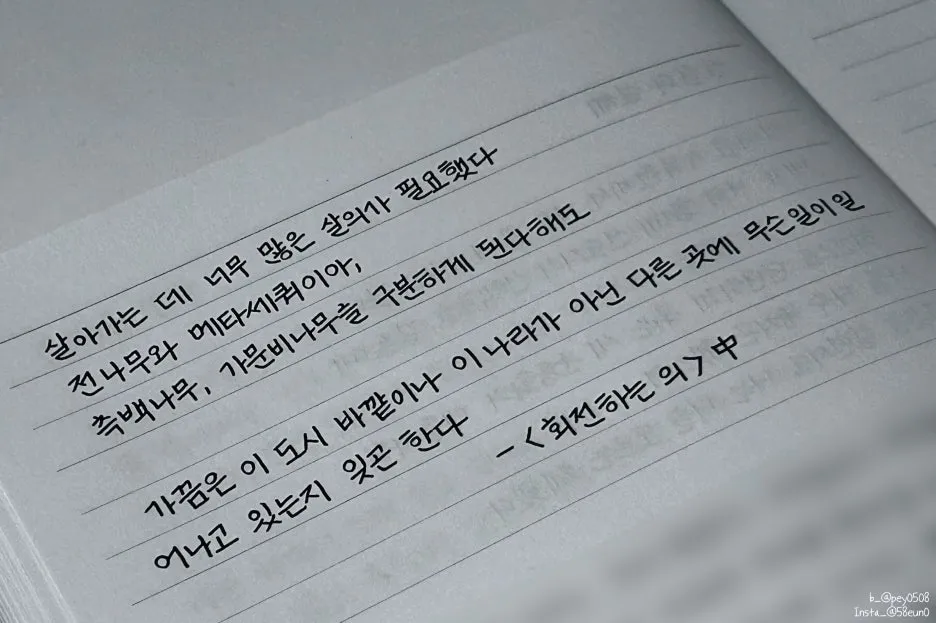 살아가는 데 너무 많은 살의가 필요했다
전나무와 메타세쿼이아,
측백나무, 가문비나무를 구분하게 된다해도
가끔은 이 도시 바깥이나 이 나라가 아닌 다른 곳에 무슨일이일
어나고 있는지 잊곤 한다
- <회전하는 의> 中
b_@pey0508
Insta_@58eun0